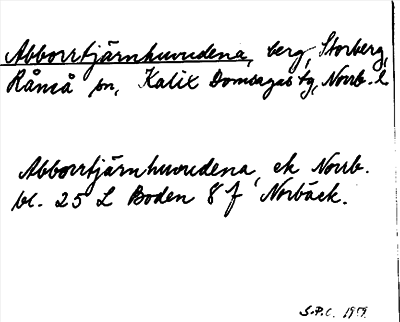 Abborrtjärnhuvudena, berg, Storberg,
Råneå sn, Kalix Domsagas tg, Norrb. l
Abborrtjärnhuvudena, ek Norrb.
bl. 25 L Boden 8 f Norbäck.
S.P.C. 1959.